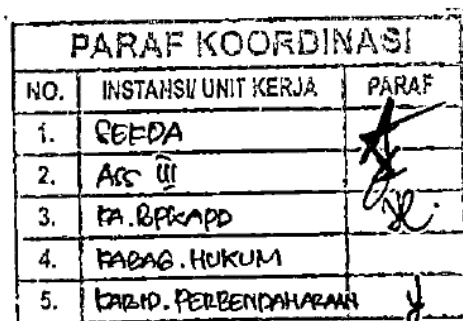 PARAF KOORDINASI
NO. INSTANSI/ UNIT KERJA PARAF
1. SEKDA
2. Ass III
3. KA.BPKAPD
4. KABAG. HUKUM
5. KABID. PERBENDAHARAAN